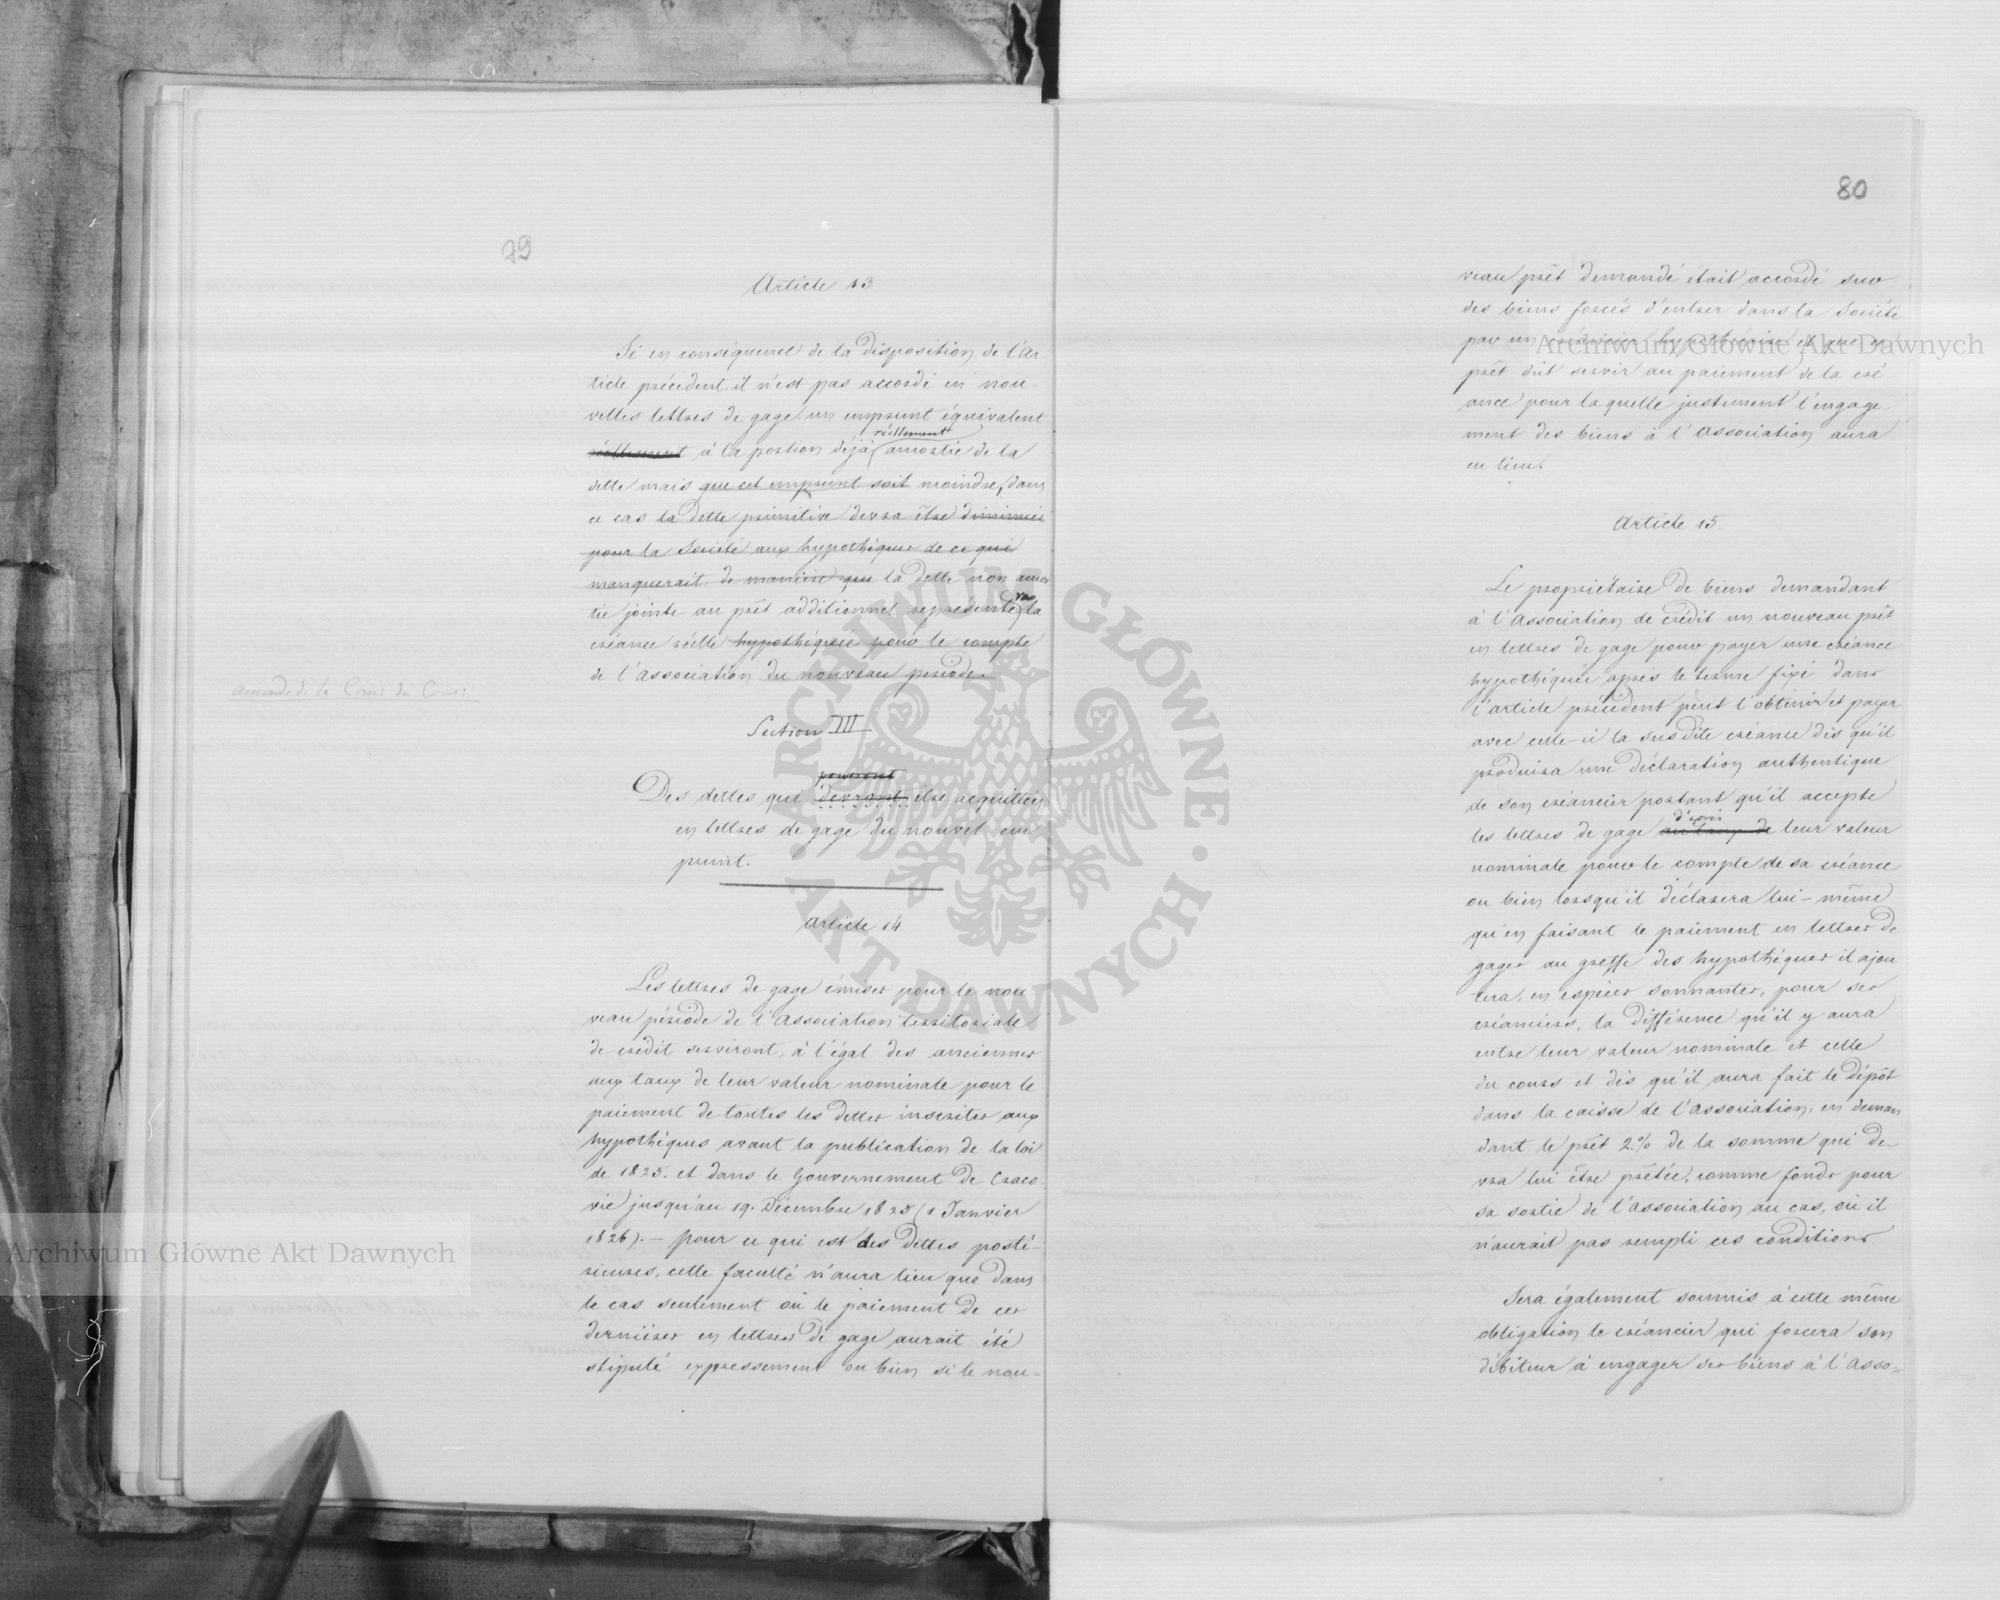 79
Article 13
Si en conséquence de la disposition de l'Ar
ticle précédent il n'est pas accordé en nou-
velles lettres de gage un emprunt équivalent
réellement
réellement à la portion déjà amortie de la
dette mais que cet emprunt soit moindre, dans
ce cas la dette primitive devra être diminuée
pour la Société aux hypothèques de ce qui
manquerait de manière que la dette non amor
tie jointe au prêt additionnel représente la
créance réelle hypothéquée pour le compte
de l'Association du nouveau periode.
Section III
pourront
Des dettes qui devront être acquittées
en lettres de gage du nouvel em
prunt.
Article 14
Les lettres de gage émises pour le nou
veau période de l'Association territoriale
de crédit serviront, à l'égal des anciennes
aux taux de leur valeur nominale pour le
paiement de toutes les dettes inscrites aux
hypothèques avant la publication de la loi
de 1825. et dans le Gouvernement de Craco
vie jusqu'au 19. Décembre 1825 (1 Janvier
1826). — pour ce qui est des dettes posté-
rieures, cette faculté n'aura lieu que dans
le cas seulement où le paiement de ces
dernières en lettres de gage aurait été
stipulé expressement ou bien si le nou-
80
veau prêt demandé était accordé sur
des biens forcés d'entrer dans la Société
par un créancier hypothécaire et que ce
prêt dût servir au paiement de la cré
ance pour laquelle justement l'engage
ment des biens à l'Association aura
eu lieu.
Article 15.
Le propriétaire de biens demandant
à l'Association de crédit un nouveau prêt
en lettres de gage pour payer une créance
hypothéquée après le terme fixé dans
l'article précédent peut l'obtenir et payer
avec celle-ci la susdite créance dès qu'il
produira une déclaration authentique
de son créancier portant qu'il accepte
les lettres de gage au taux de leur valeur
nominale pour le compte de sa créance
ou bien lorsqu'il déclarera lui-même
qu'en faisant le paiement en lettres de
gages au greffe des hypothèques il ajou
tera, en espèces sonnantes, pour ses
créanciers, la différence qu'il y aura
entre leur valeur nominale et celle
du cours et dès qu'il aura fait le dépôt
dans la caisse de l'Association, en deman
dant le prêt 2% de la somme qui de
vra lui être prêtée, comme fonds pour
sa sortie de l'association au cas, où il
n'aurait pas rempli ces conditions.
Sera également soumis à cette même
obligation le créancier qui forcera son
débiteur à engager ses biens à l'Asso-
Archiwum Główne Akt Dawnych
Archiwum Główne Akt Dawnych
ARCHIWUM GŁÓWNE · AKT DAWNYCH ·